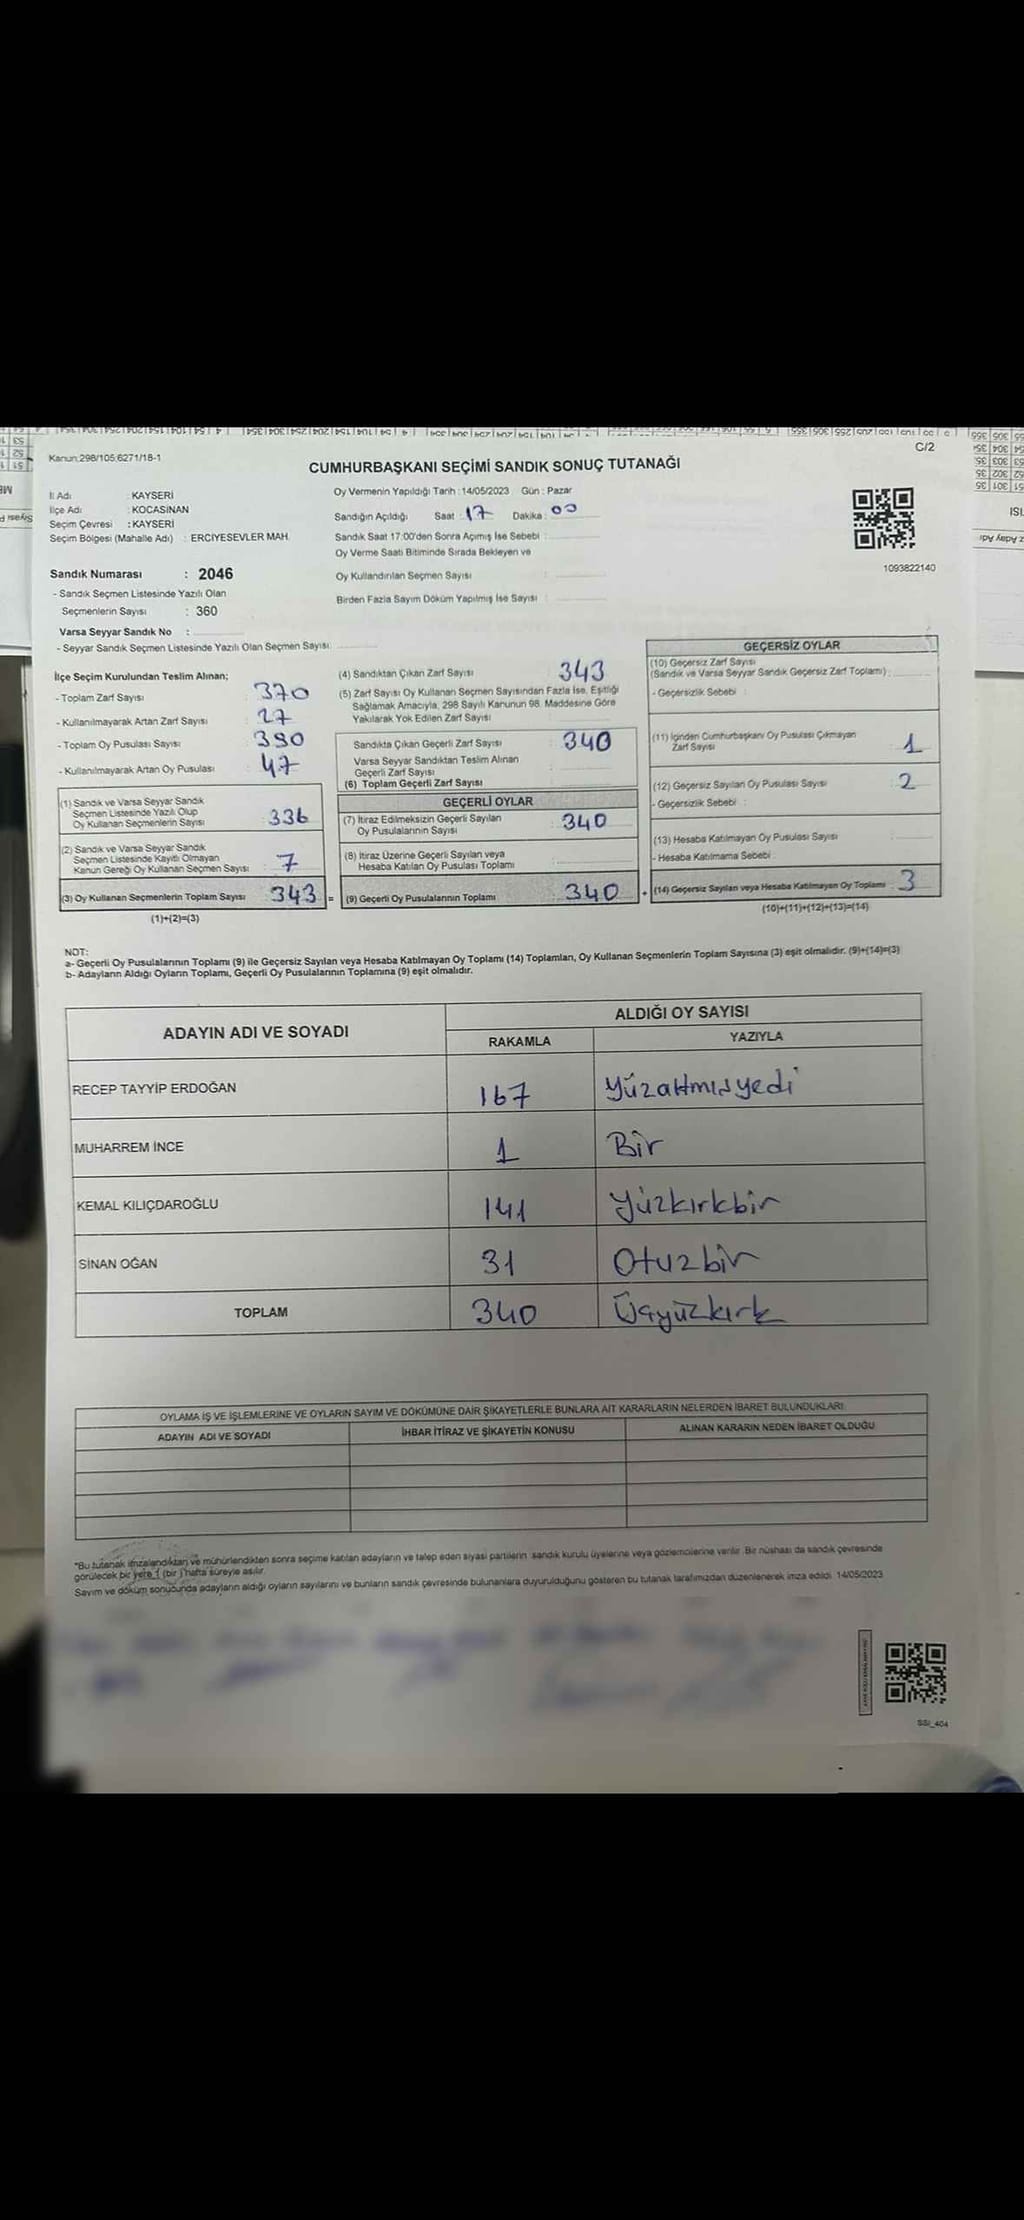 C/2
Kanun:298/105;6271/18-1
CUMHURBAŞKANI SEÇİMİ SANDIK SONUÇ TUTANAĞI
İl Adı : KAYSERİ
İlçe Adı : KOCASİNAN
Seçim Çevresi : KAYSERİ
Seçim Bölgesi (Mahalle Adı) : ERCİYESEVLER MAH.
Sandık Numarası : 2046
- Sandık Seçmen Listesinde Yazılı Olan
Seçmenlerin Sayısı : 360
Varsa Seyyar Sandık No :
- Seyyar Sandık Seçmen Listesinde Yazılı Olan Seçmen Sayısı:
Oy Vermenin Yapıldığı Tarih : 14/05/2023 Gün : Pazar
Sandığın Açıldığı Saat : 17 Dakika : 00
Sandık Saat 17:00'den Sonra Açımış İse Sebebi :
Oy Verme Saati Bitiminde Sırada Bekleyen ve
Oy Kullandırılan Seçmen Sayısı :
Birden Fazla Sayım Döküm Yapılmış İse Sayısı :
1093822140
İlçe Seçim Kurulundan Teslim Alınan;
- Toplam Zarf Sayısı : 370
- Kullanılmayarak Artan Zarf Sayısı : 27
- Toplam Oy Pusulası Sayısı : 390
- Kullanılmayarak Artan Oy Pusulası : 47
(1) Sandık ve Varsa Seyyar Sandık
Seçmen Listesinde Yazılı Olup
Oy Kullanan Seçmenlerin Sayısı : 336
(2) Sandık ve Varsa Seyyar Sandık
Seçmen Listesinde Kayıtlı Olmayan
Kanun Gereği Oy Kullanan Seçmen Sayısı : 7
(3) Oy Kullanan Seçmenlerin Toplam Sayısı : 343 =
(1)+(2)=(3)
(4) Sandıktan Çıkan Zarf Sayısı : 343
(5) Zarf Sayısı Oy Kullanan Seçmen Sayısından Fazla İse, Eşitliği
Sağlamak Amacıyla, 298 Sayılı Kanunun 98. Maddesine Göre
Yakılarak Yok Edilen Zarf Sayısı :
Sandıkta Çıkan Geçerli Zarf Sayısı : 340
Varsa Seyyar Sandıktan Teslim Alınan
Geçerli Zarf Sayısı
(6) Toplam Geçerli Zarf Sayısı
GEÇERLİ OYLAR
(7) İtiraz Edilmeksizin Geçerli Sayılan
Oy Pusulalarının Sayısı : 340
(8) İtiraz Üzerine Geçerli Sayılan veya
Hesaba Katılan Oy Pusulası Toplamı :
(9) Geçerli Oy Pusulalarının Toplamı : 340 +
GEÇERSİZ OYLAR
(10) Geçersiz Zarf Sayısı
(Sandık ve Varsa Seyyar Sandık Geçersiz Zarf Toplamı) :
- Geçersizlik Sebebi :
(11) İçinden Cumhurbaşkanı Oy Pusulası Çıkmayan
Zarf Sayısı : 1
(12) Geçersiz Sayılan Oy Pusulası Sayısı : 2
- Geçersizlik Sebebi :
(13) Hesaba Katılmayan Oy Pusulası Sayısı :
- Hesaba Katılmama Sebebi :
(14) Geçersiz Sayılan veya Hesaba Katılmayan Oy Toplamı : 3
(10)+(11)+(12)+(13)=(14)
NOT:
a- Geçerli Oy Pusulalarının Toplamı (9) ile Geçersiz Sayılan veya Hesaba Katılmayan Oy Toplamı (14) Toplamları, Oy Kullanan Seçmenlerin Toplam Sayısına (3) eşit olmalıdır. (9)+(14)=(3)
b- Adayların Aldığı Oyların Toplamı, Geçerli Oy Pusulalarının Toplamına (9) eşit olmalıdır.
ADAYIN ADI VE SOYADI
ALDIĞI OY SAYISI
RAKAMLA YAZIYLA
RECEP TAYYİP ERDOĞAN 167 Yüzaltmışyedi
MUHARREM İNCE 1 Bir
KEMAL KILIÇDAROĞLU 141 Yüzkırkbir
SİNAN OĞAN 31 Otuzbir
TOPLAM 340 Üçyüzkırk
OYLAMA İŞ VE İŞLEMLERİNE VE OYLARIN SAYIM VE DÖKÜMÜNE DAİR ŞİKAYETLERLE BUNLARA AİT KARARLARIN NELERDEN İBARET BULUNDUKLARI
ADAYIN ADI VE SOYADI
İHBAR İTİRAZ VE ŞİKAYETİN KONUSU
ALINAN KARARIN NEDEN İBARET OLDUĞU
*Bu tutanak imzalandıktan ve mühürlendikten sonra seçime katılan adayların ve talep eden siyasi partilerin sandık kurulu üyelerine veya gözlemcilerine verilir. Bir nüshası da sandık çevresinde
görülecek bir yere 1 (bir ) hafta süreyle asılır.
Sayım ve döküm sonucunda adayların aldığı oyların sayılarını ve bunların sandık çevresinde bulunanlara duyurulduğunu gösteren bu tutanak tarafımızdan düzenlenerek imza edildi. 14/05/2023
SSI_404